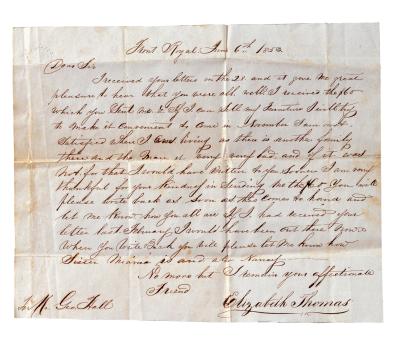 Front Royal June 6th 1853
Dear Sir
I received your letters on the 28 and it give me great
pleasure to hear that you were all well I received the $60
which you sent me & if I can sell my Furniture I will try
to make it convenient to come in November I am not
Satisfied where I was living as there is another family
there and the Man is very very bad and if it was
not for that I would have written to you Sooner I am very
thankful for your kindness in Sending me the You will
please write back as Soon as this comes to hand and
let me know how you all are If I had received your
letter last February I would have been out there Now
When you write back you will please let me know how
Sister Maria is and also Nancy
No more but I remain your affectionate
Friend Elizabeth Thomas
For Mr Geo. Hall